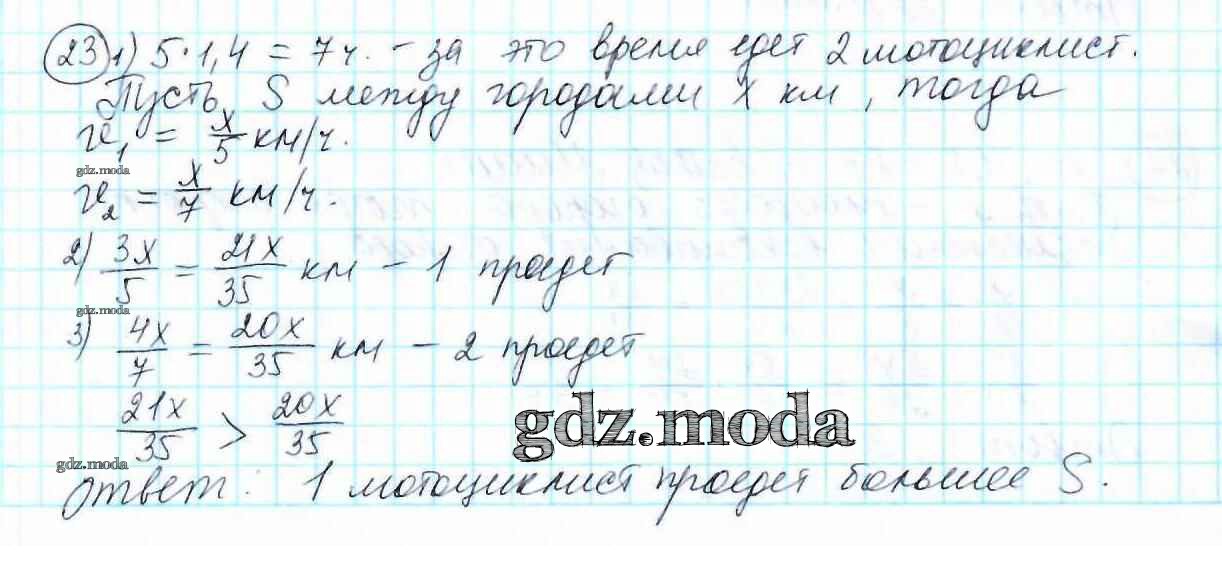 23 1) 5·1,4 = 7ч. - за это время едет 2 мотоциклист.
Пусть S между городами x км, тогда
v₁ = x/5 км/ч.
gdz.moda
v₂ = x/7 км/ч.
2) 3x/5 = 21x/35 км - 1 проедет
gdz.moda
3) 4x/7 = 20x/35 км - 2 проедет
21x/35 > 20x/35
gdz.moda
gdz.moda
Ответ: 1 мотоциклист проедет большее S.